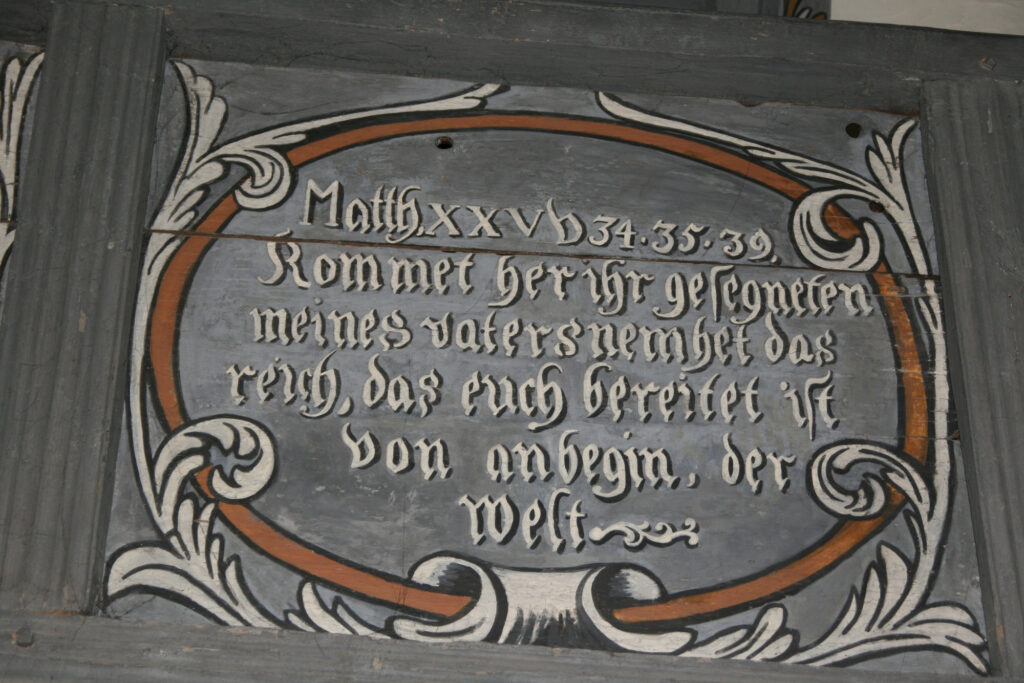 Matth. XXV V 34. 35. 39.
Kommet her ihr gesegneten
meines vaters nemhet das
reich, das euch bereitet ist
von anbegin, der
welt